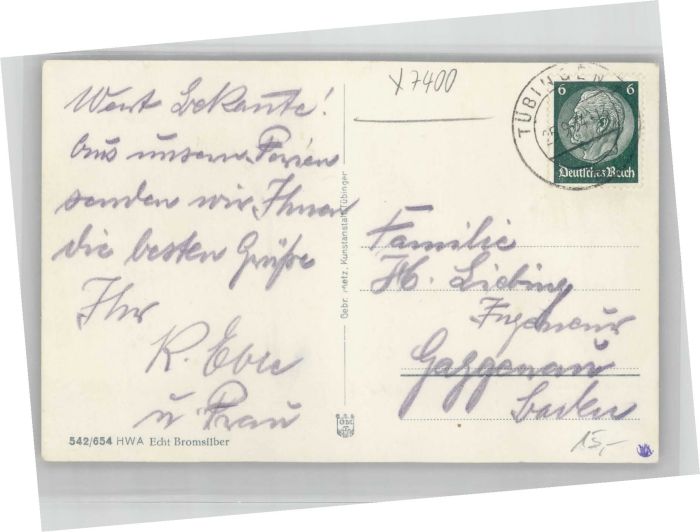 Wert bekannte!
Aus unsern Ferien
senden wir Ihnen
die besten Grüße
Ihr
K. Eble
u Frau
542/654 HWA Echt Bromsilber
Gebr. Metz, Kunstanstalt, Tübingen
GMT
X7400
TÜBINGEN
6 6
Deutsches Reich
Familie
H. Liebing
Ingenieur
Gaggenau
Baden
15,-